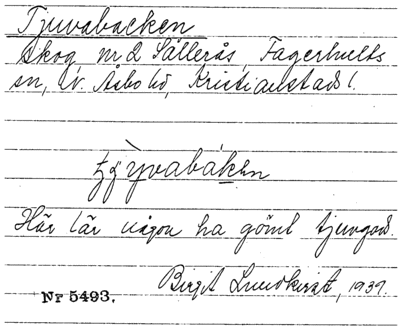 Tjuvabacken
Skog nr 2 Sållerås, Fagerhults
sn, N. Åsbo hd, Kristianstads l.
Här lär någon ha gömt tjuvgods.
Birgit Lundkvist, 1939.
Nr 5493.